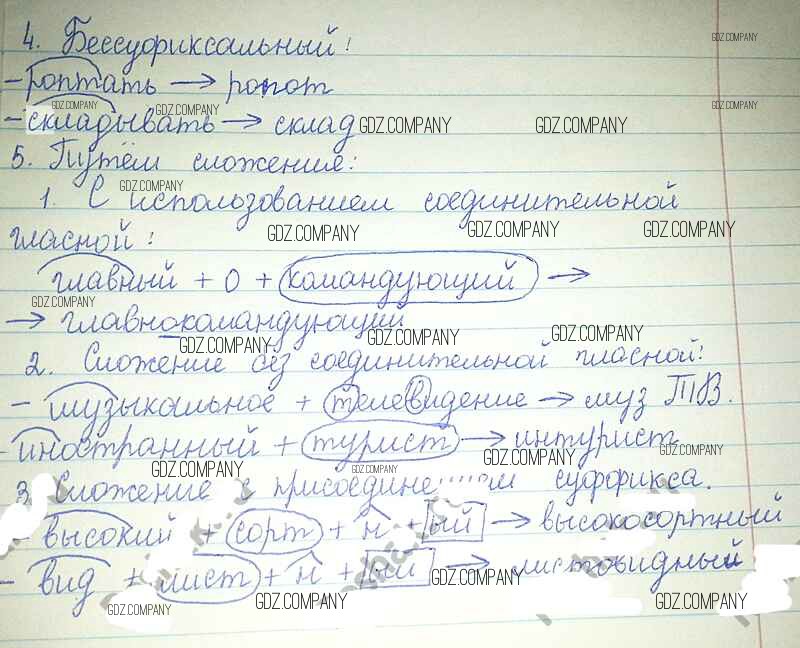 4. Бессуфиксальный!
- роптать → ропот
- складывать → склад
5. Путём сложения:
1. С использованием соединительной
гласной:
главный + о + командующий →
→ главнокомандующий
2. Сложение без соединительной гласной:
- музыкальное + телевидение → муз ТВ.
- иностранный + турист → интурист
3. Сложение с присоединением суффикса.
- высокий + сорт + н + ый → высокосортный
- вид + лист + н + ый → листовидный
GDZ.COMPANY